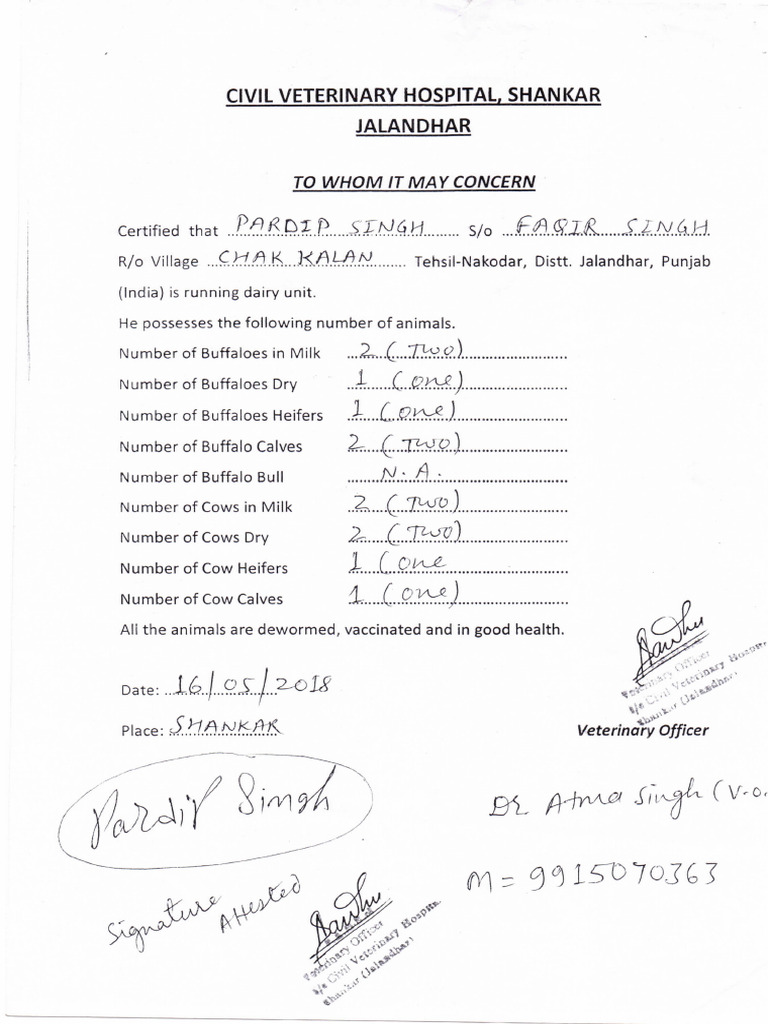 CIVIL VETERINARY HOSPITAL, SHANKAR
JALANDHAR
TO WHOM IT MAY CONCERN
Certified that PARDIP SINGH S/o FAQIR SINGH
R/o Village CHAK KALAN Tehsil-Nakodar, Distt. Jalandhar, Punjab
(India) is running dairy unit.
He possesses the following number of animals.
Number of Buffaloes in Milk 2 (TWO)
Number of Buffaloes Dry 1 (one)
Number of Buffaloes Heifers 1 (one)
Number of Buffalo Calves 2 (TWO)
Number of Buffalo Bull N.A.
Number of Cows in Milk 2 (TWO)
Number of Cows Dry 2 (TWO)
Number of Cow Heifers 1 (one
Number of Cow Calves 1 (one)
All the animals are dewormed, vaccinated and in good health.
Sandhu
Veterinary Officer
I/c Civil Veterinary Hospita
Shankar (Jalandhar)
Date: 16/05/2018
Place: SHANKAR
Veterinary Officer
Pardip Singh
Dr. Atma Singh (V.O.
M = 9915070363
Signature Attested
Sandhu
Veterinary Officer
I/c Civil Veterinary Hospita
Shankar (Jalandhar)